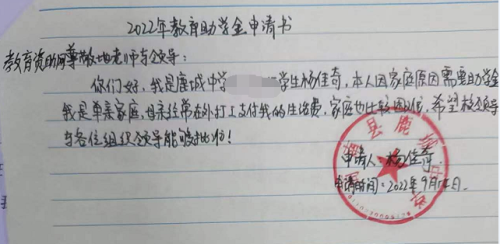 2022年教育助学金申请书
教育资助尊敬地老师与领导:
你们好,我是鹿城中学学生杨佳奇,本人因家庭原因需要助学金
我是单亲家庭,母亲经常在外打工支付我的生活费,家庭也比较困难,希望校领导
与各位组织领导能够批准!
申请人:杨佳奇
申请时间:2022年9月 日.
县鹿城中